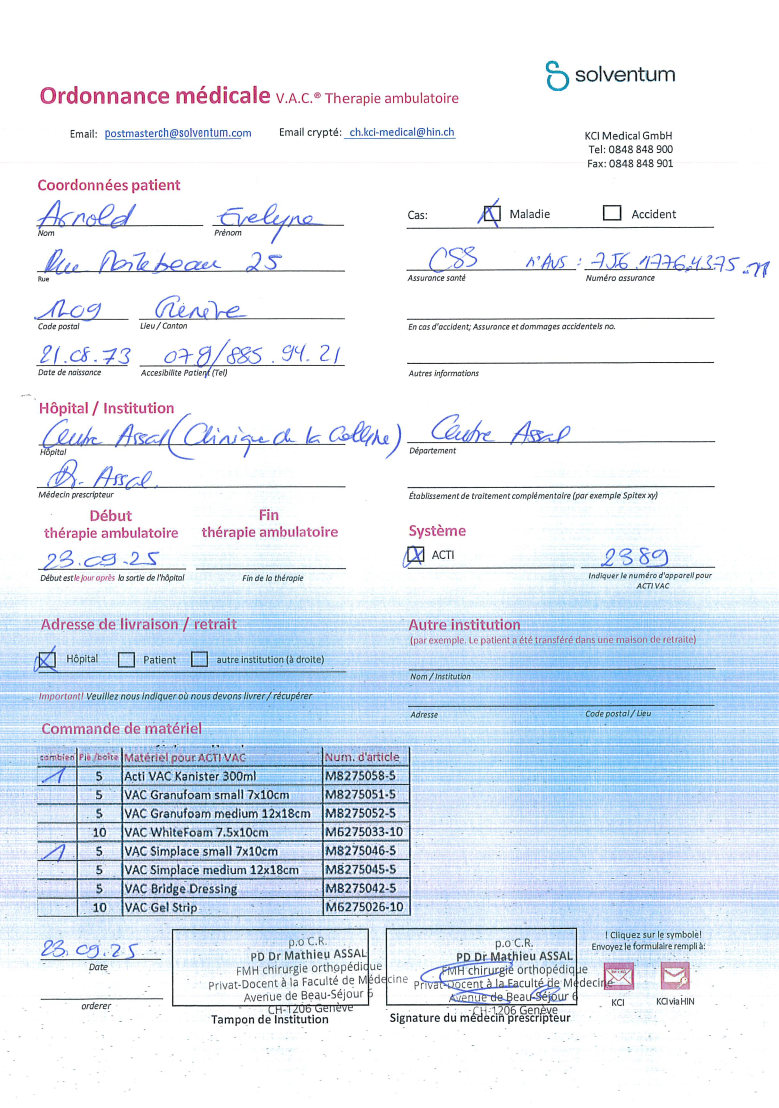 solventum
Ordonnance médicale V.A.C.® Therapie ambulatoire
Email: postmasterch@solventum.com Email crypté: ch.kci-medical@hin.ch
KCI Medical GmbH
Tel: 0848 848 900
Fax: 0848 848 901
Coordonnées patient
Arnold Evelyne
Nom Prénom
Cas: Maladie Accident
Rue 25
Rue
CSS n°AVS : 756.1776.4375.11
Assurance santé Numéro assurance
1209 Genève
Code postal Lieu / Canton
En cas d'accident; Assurance et dommages accidentels no.
21.08.73 078/885.94.21
Date de naissance Accesibilite Patient (Tel)
Autres informations
Hôpital / Institution
Centre Assal (Clinique de la Colline) Centre Assal
Hôpital Département
Dr. Assal.
Médecin prescripteur Établissement de traitement complémentaire (par exemple Spitex xy)
Début thérapie ambulatoire
Fin thérapie ambulatoire
Système
23.09.25
ACTI 2389
Début est le jour après la sortie de l'hôpital Fin de la thérapie
Indiquer le numéro d'appareil pour
ACTI VAC
Adresse de livraison / retrait
Hôpital Patient autre institution (à droite)
Important! Veuillez nous indiquer où nous devons livrer / récupérer
Autre institution
(par exemple. Le patient a été transféré dans une maison de retraite)
Nom / Institution
Adresse Code postal / Lieu
Commande de matériel
combien Piè /boîte Matériel pour ACTI VAC Num. d'article
1 5 Acti VAC Kanister 300ml M8275058-5
5 VAC Granufoam small 7x10cm M8275051-5
5 VAC Granufoam medium 12x18cm M8275052-5
10 VAC WhiteFoam 7.5x10cm M6275033-10
1 5 VAC Simplace small 7x10cm M8275046-5
5 VAC Simplace medium 12x18cm M8275045-5
5 VAC Bridge Dressing M8275042-5
10 VAC Gel Strip M6275026-10
23.09.25
Date
orderer
p.o C.R.
PD Dr Mathieu ASSAL
FMH chirurgie orthopédique
Privat-Docent à la Faculté de Médecine
Avenue de Beau-Séjour 6
CH-1206 Genève
Tampon de Institution
p.o C.R.
PD Dr Mathieu ASSAL
FMH chirurgie orthopédique
Privat-Docent à la Faculté de Médecine
Avenue de Beau-Séjour 6
CH-1206 Genève
Signature du médecin prescripteur
! Cliquez sur le symbole!
Envoyez le formulaire rempli à:
KCI KCI via HIN